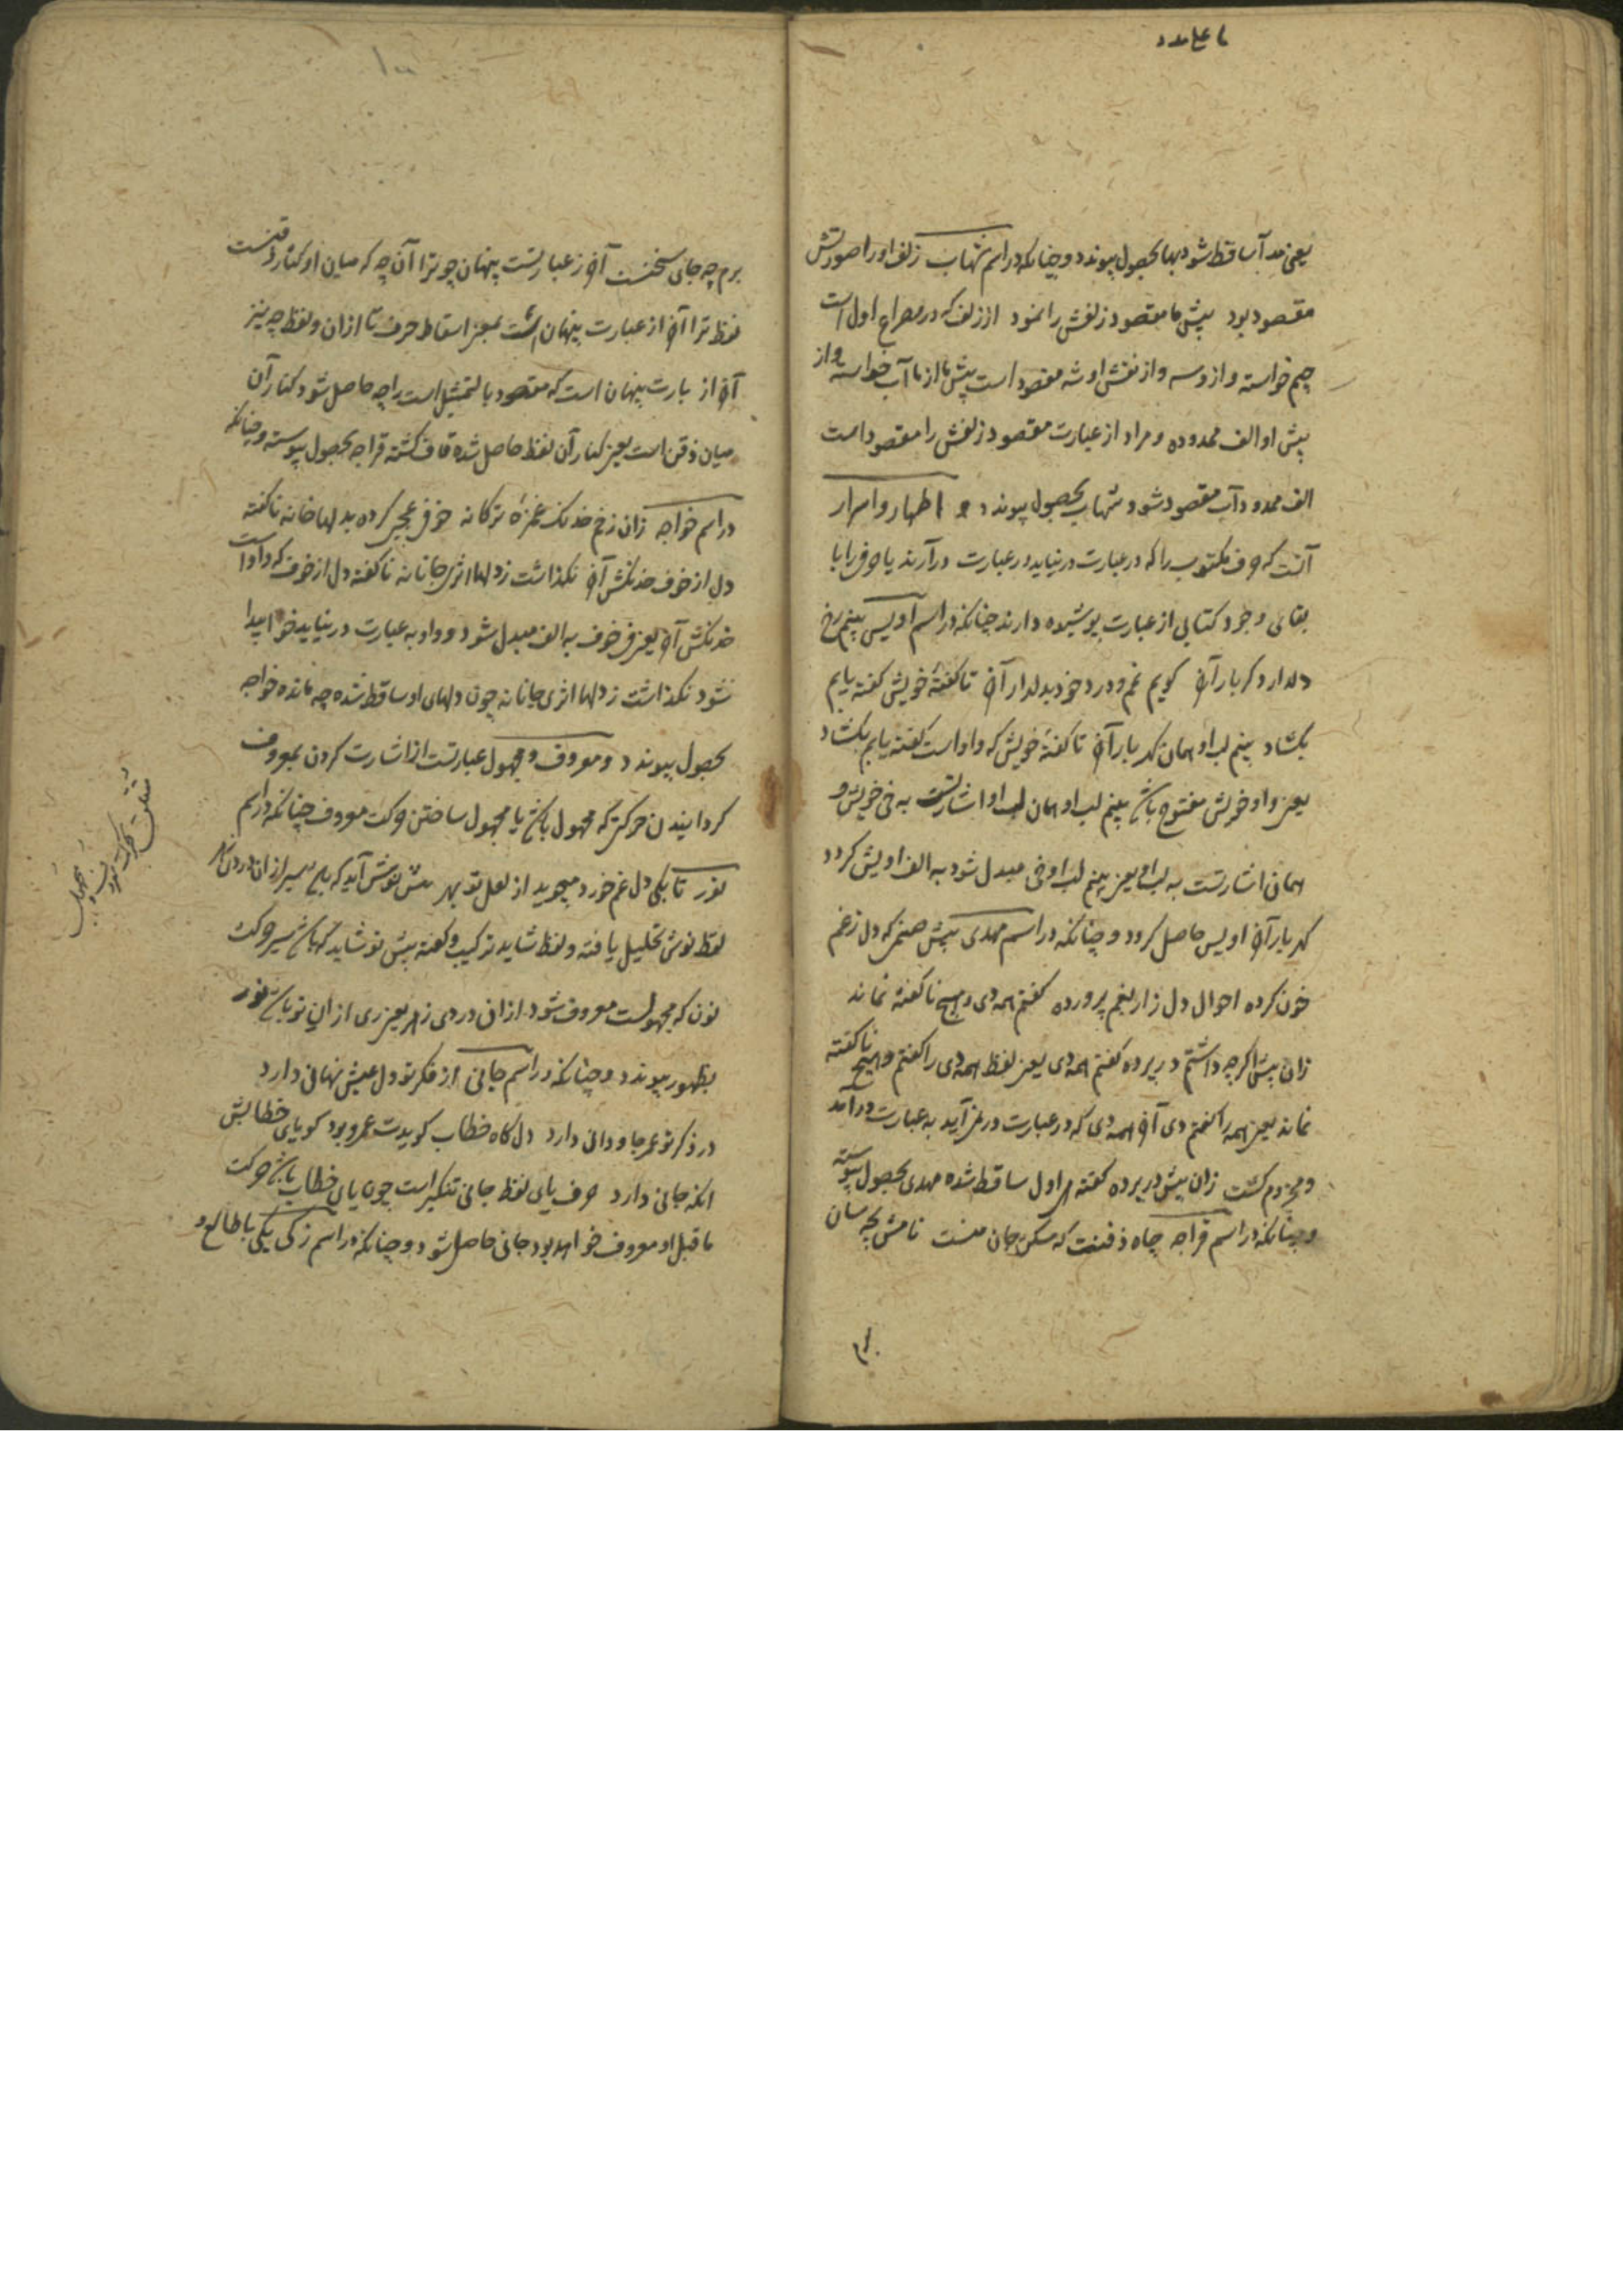 یعنی مد آب ساقط شود بها بحصول پیوندد و چنانکه در اسم شهاب زلف او را صورتش
مقصود بود پیش ما مقصود زلفش را نمود از زلف که در مصراع اول است
جیم خواسته و از و سه و از نقش او شه مقصود است پیش ما از ما آب خواسته و از
پیش او الف ممدوده و مراد از عبارت مقصود زلفش را مقصود است
الف ممدود آب مقصود شود شهاب بحصول پیوندد و اظهار و اسرار
آنست که حرف مکتوب را که در عبارت در نیاید در عبارت درآرند یا حرفی را با
بقای وجود کتابی از عبارت پوشیده دارند چنانکه در اسم اویس بینم رخ
دلدار و گر بار آن گویم غم و درد خود بدلدار آن تا گفتهٔ خویش گفته یابم
بگشاد بینم لب او همان گهر بار آن تا گفتهٔ خویش که واو است گفته یابم بگشاد
یعنی واو خویش مفتوح باشد بینم لب او همان لب او اشارتست به خی خویش و
همان اشارتست به لب او یعنی بینم لب او خی مبدل شود به الف اویش گردد
گهر بار آن اویس حاصل گردد و چنانکه در اسم مهدی پیش صنمی که دل ز غم
خون کرده احوال دل زار بغم پرورده گفتم همه دی و هیچ ناگفته نماند
زان پیش اگرچه داشتم در پرده گفتم همه دی یعنی لفظ همه دی را گفتم و هیچ ناگفته
نماند یعنی همه را گفتم دی آن همه دی که در عبارت در نمی آید به عبارت درآمد
و مجزوم گشت زان پیش در پرده گفته ه اول ساقط شده مهدی بحصول پیوسته
و چنانکه در اسم قراجه چاه ذقنت که مسکن جان منست نامش بچه سان
برم چه جای سخنست آن ز عبارتست پنهان چو ترا آن چه که میان او کنار ذقنست
لفظ ترا آن از عبارت پنهان است یعنی اسقاط حرف تا از ان و لفظ چه نیز
آن از بارت پنهان است که مقصود بالتمثیل است راچه حاصل شود کنار آن
میان ذقن است یعنی کنار آن لفظ حاصل شده قاف گشته قراجه بحصول پیوسته و چنانکه
در اسم خواجه زان زخم خدنک غمزه ترکانه خوفی عجبی کرده بدلها خانه ناگفته
دل از خوف خدنگش آن نگذاشت ز دلها اثری جانانه ناگفته دل از خوف که واو است
خدنگش آن یعنی ف خوف به الف مبدل شود و واو به عبارت در نیاید خوا پیدا
شود نگذاشت ز دلها اثری جانانه چون دلهای او ساقط شده چه مانده خواجه
بحصول پیوندد و معروف و مجهول عبارتست از اشارت کردن بمعروف
گردانیدن حرکتی که مجهول باشد یا مجهول ساختن حرکت معروف چنانکه در اسم
نور تا بکی دل غم خورد میجوید از لعل تو بهر
لفظ نوش تحلیل یافته و لفظ شاید ترکیب و گفته پیش نو شاید که باشد سیر حرکت
نون که مجهولست معروف شود از ان دردی زهر یعنی ری از ان نو باشد نور
بظهور پیوندد و چنانکه در اسم جانی از فکر تو دل عیش نهانی دارد
در ذکر تو عمر جاودانی دارد دل گاه خطاب گویدت عمر و بود گویای خطابش
آنکه جانی دارد حرف یای لفظ جانی تنکیر است چون یای خطاب باشد حرکت
ما قبل او معروف خواهد بود جانی حاصل شود و چنانکه در اسم زکی یکی با طالع و